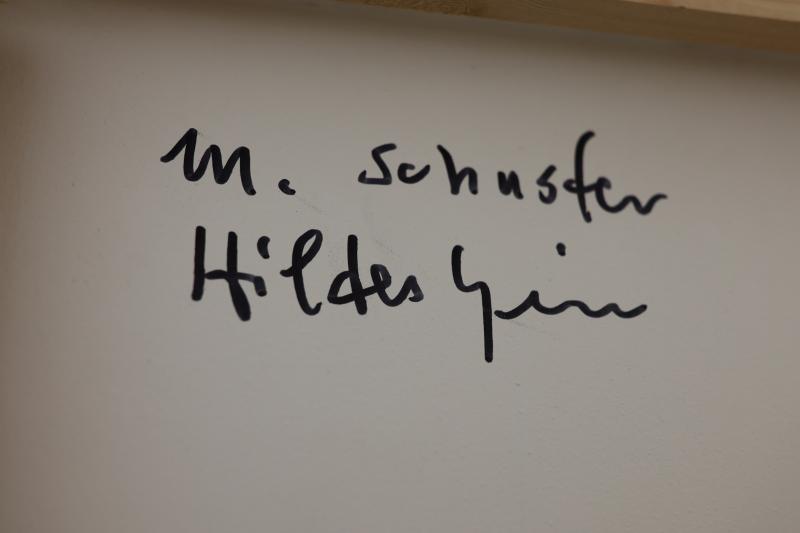 M. Schuster
Hildesheim